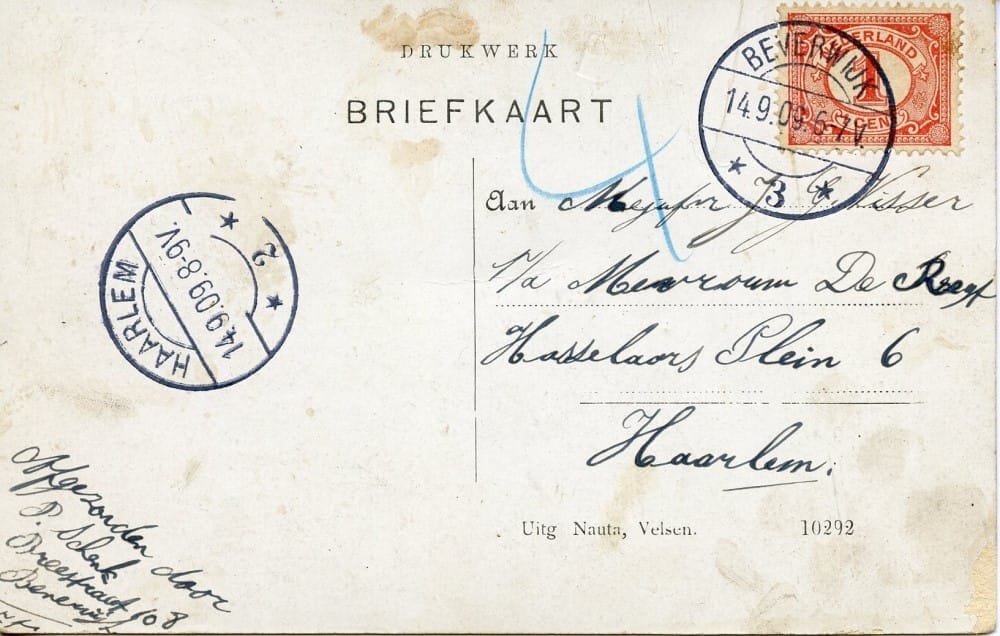 DRUKWERK
BRIEFKAART
NEDERLAND
1
CENT
BEVERWIJK
14.9.09.6-7V.
3
HAARLEM
14.9.09.8-9V.
2
4
Aan Mejufr J G Visser
p/a Mevrouw De
Hasselaars Plein 6
Haarlem.
Uitg Nauta, Velsen. 10292
Afgezonden door
P. Schenk
Breestraat 108
Beverwijk